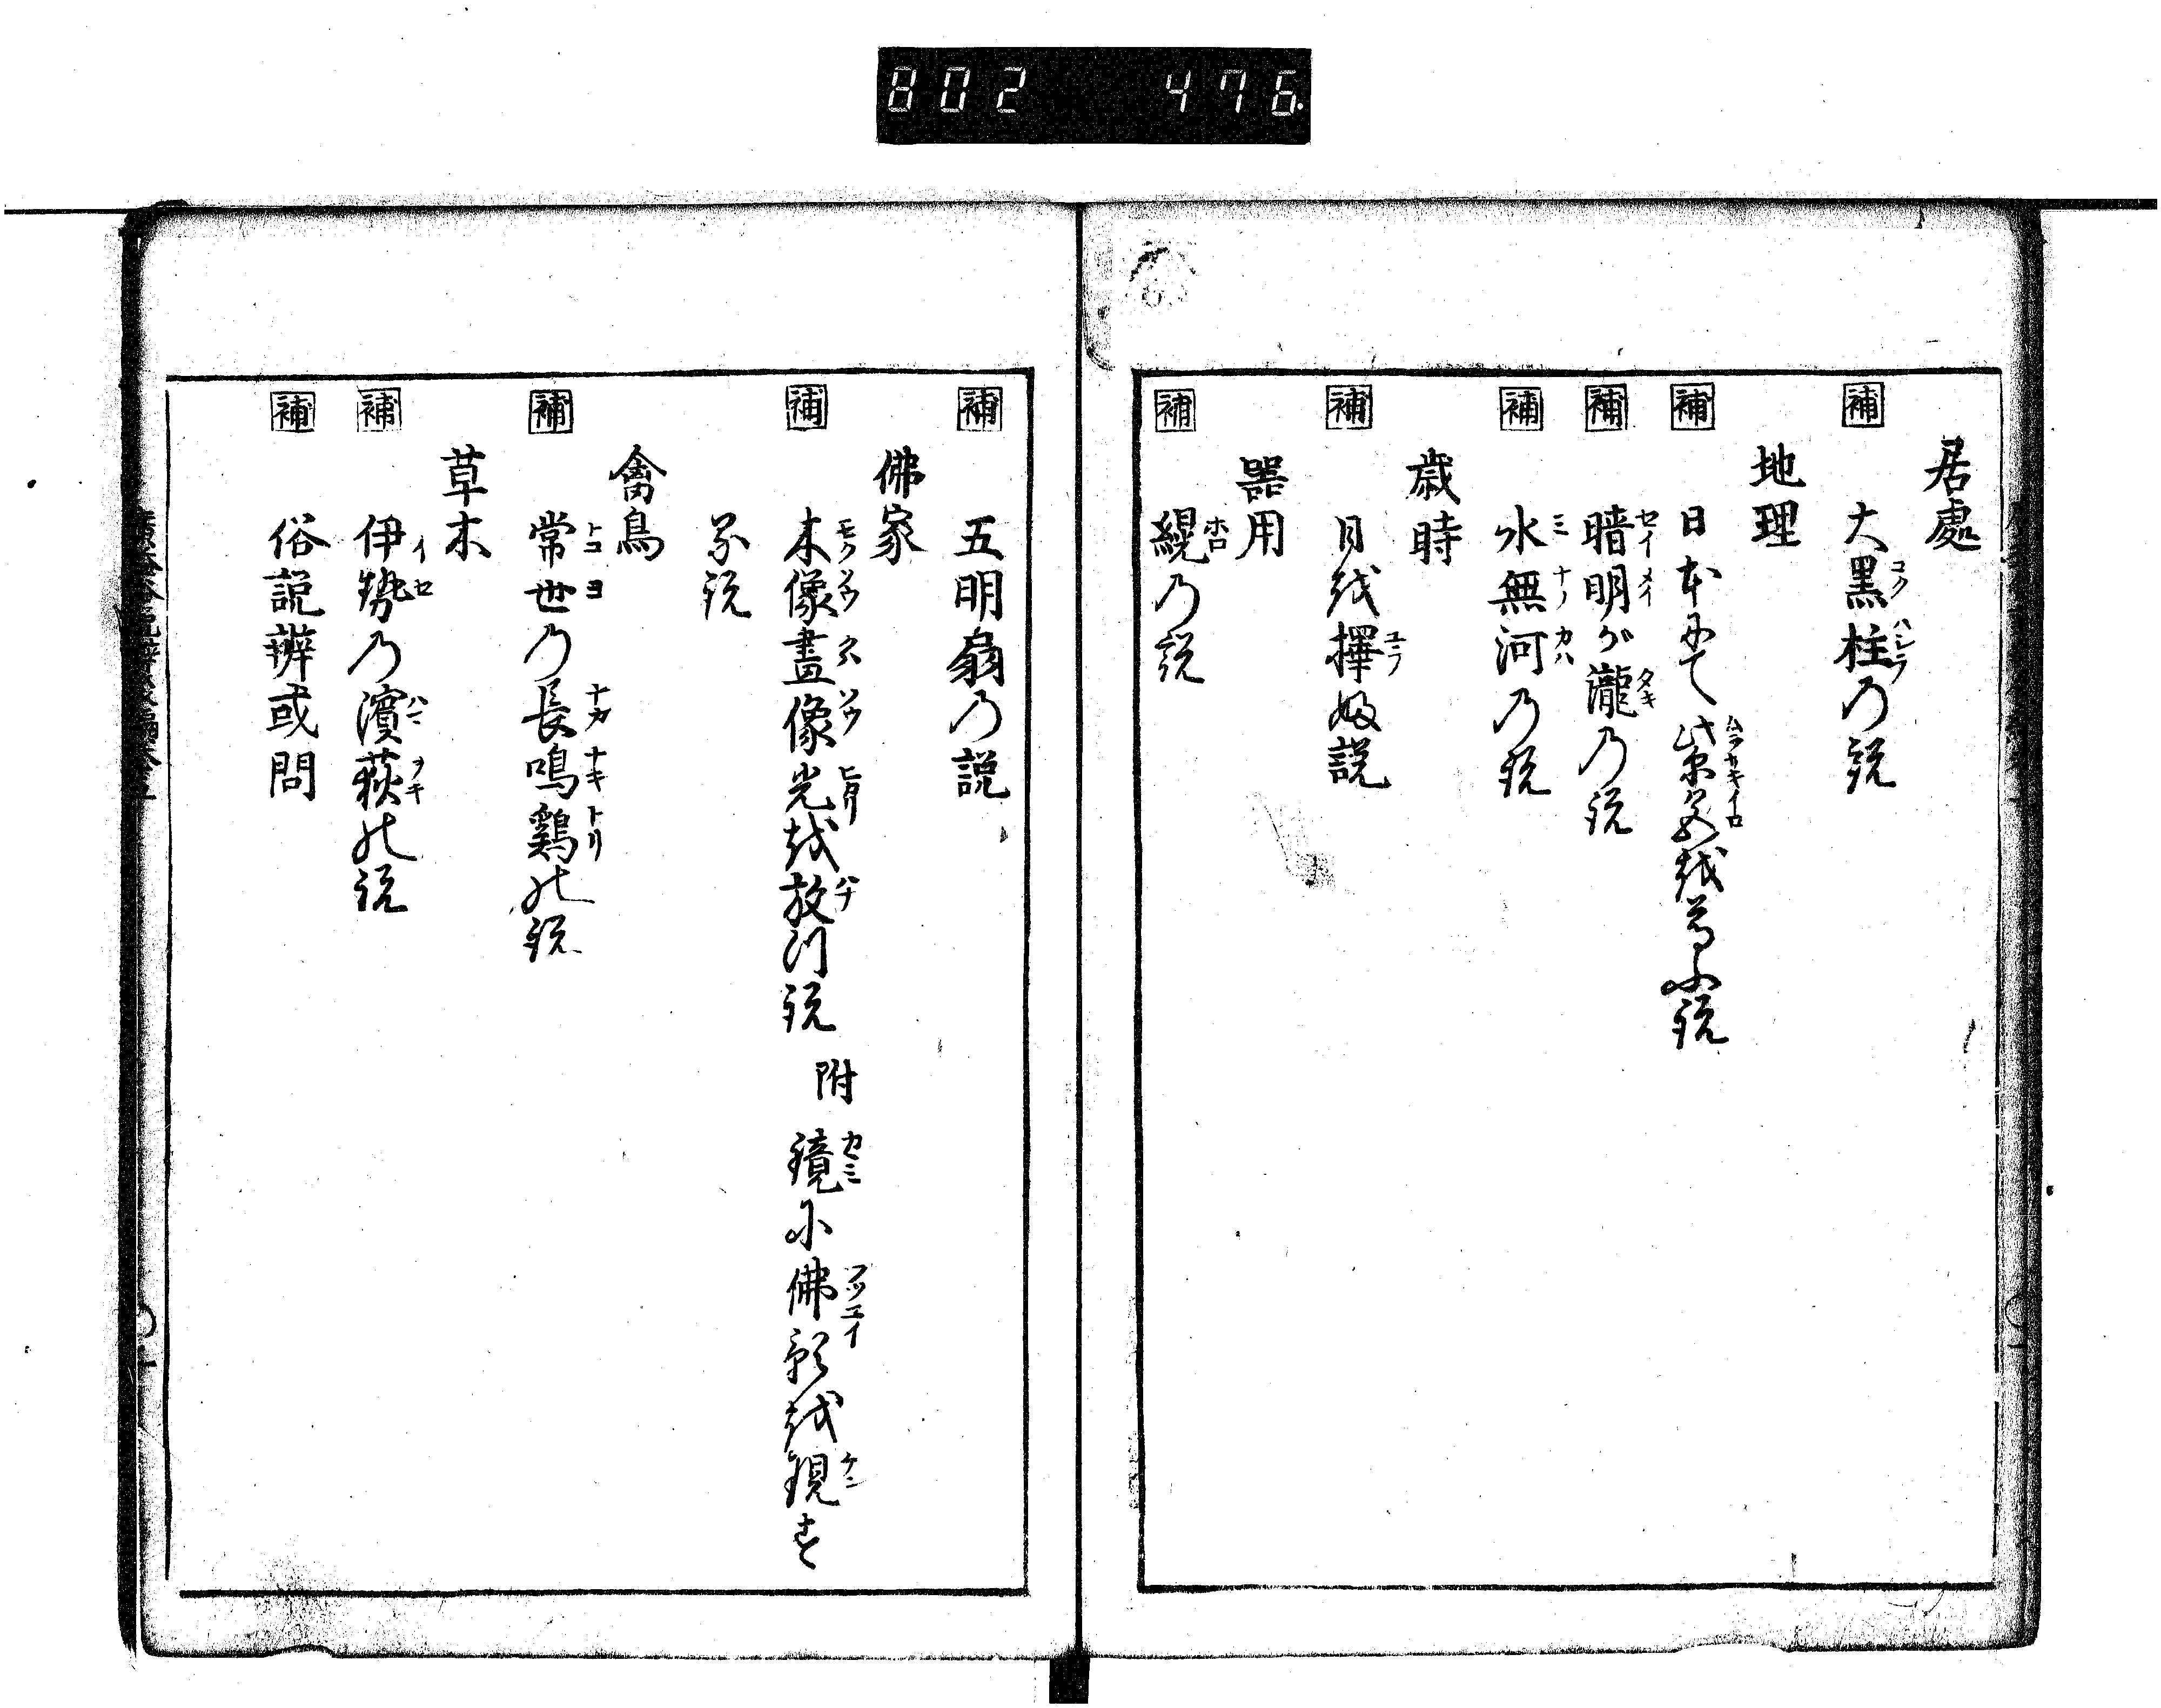 802 476
居處
補 大黒柱の説
地理
補 日本にて紫色を尊ふ説
補 晴明が瀧の説
補 水無河の説
歳時
補 日を擇ふ説
器用
補 縨の説
補 五明扇の説
佛家
補 木像畫像光を放つ説 附 鏡に佛影を現す
る説
禽鳥
補 常世の長鳴鶏の説
草木
補 伊勢の濱荻の説
補 俗説辨或問